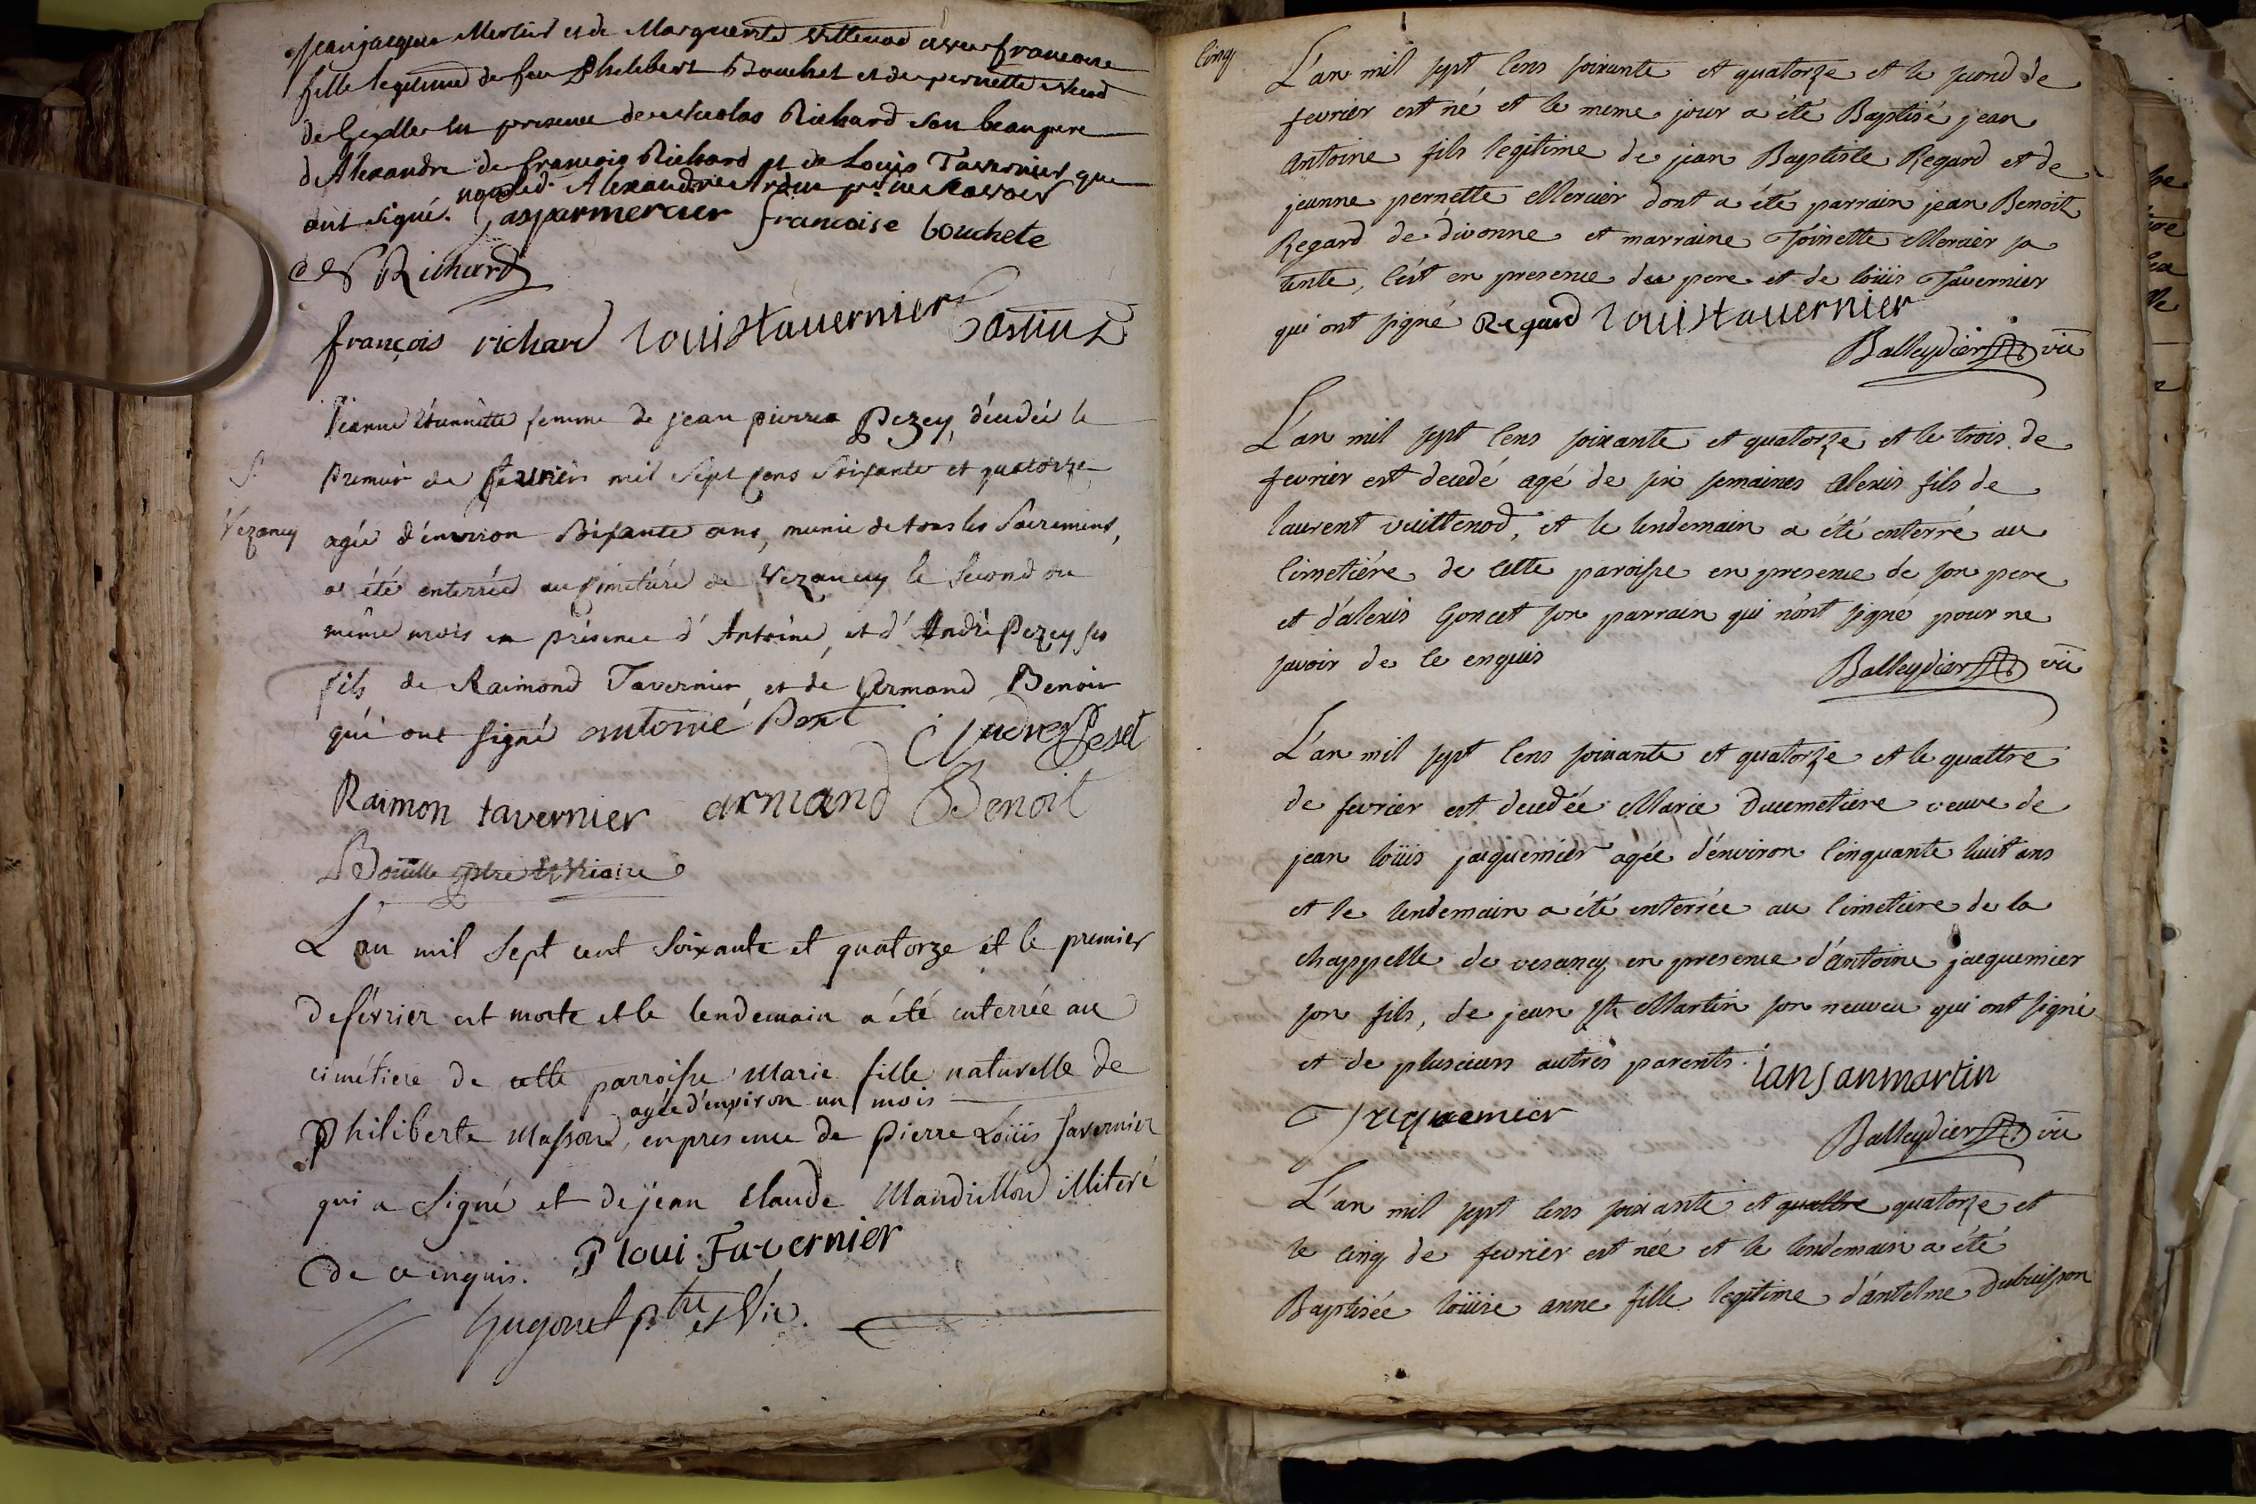 jean jacques Mercier et de Marguerite Vuttenod avec francoise
fille legitime de feu Philibert Bouchet et de pernette
de Gex en presence de Nicolas Richard son beaupere
d'Alexandre de françois Richard et de Louis Tavernier que
non led. Alexandre
ont signé. Gaspar mercier francoise bouchete
Richard
françois richard louis tauernier Castin
Jeanne femme de jean pierre Pezey, décédée le
premier de fevrier mil sept cens soixante et quatorze
Vezancy
agée d'environ soixante ans, munie de tous les sacremens,
a été enterrée au cimetiére de Vezancy le second du
même mois en présence d'Antoine, et d'André Pezey ses
fils de Raimond Tavernier et de Armand Benoit
qui ont signé antoine Andre Peset
Raimon tavernier armand Benoit
Bouille ptre et vicaire
L'an mil sept cent soixante et quatorze et le premier
de février est morte et le lendemain a été enterrée au
cimétiere de cette parroisse Marie fille naturelle de
agée d'environ un mois
Philiberte Masson, en présence de Pierre Loüis Tavernier
qui a signé et de jean Claude Mandrillon illiteré
de ce enquis. P loui Tavernier
Hugonet ptre et Vic.
cinq
L'an mil sept cens soixante et quatorze et le second de
fevrier est né et le meme jour a été Baptisé jean
antoine fils legitime de jean Baptiste Regard et de
jeanne pernette Mercier dont a été parrain jean Benoit
Regard de divonne et marraine Toinette Mercier sa
tente, c'est en presence du pere et de loüis Tavernier
qui ont signé Regard louis tauernier
Balleydier vic
L'an mil sept cens soixante et quatorze et le trois de
fevrier est decedé agé de six semaines alexis fils de
laurent vuittenod, et le lendemain a été enterré au
cimetiére de cette paroisse en presence de son pere
et d'alexis Goncet son parrain qui n'ont signé pour ne
savoir de ce enquis
Balleydier vic
L'an mil sept cens soixante et quatorze et le quattre
de fevrier est decedée Marie Ducimetiere veuve de
jean loüis jacquemier agée d'environ cinquante huit ans
et le lendemain a été enterrée au cimetiere de la
chappelle de vesancy en presence d'antoine jacquemier
son fils, de jean St Martin son neuveu qui ont signé
et de plusieurs autres parents. Ian sanmartin
Jacquemier
Balleydier vic
L'an mil sept cens soixante et quattre quatorze et
le cinq de fevrier est née et le lendemain a été
Baptisée loüise anne fille legitime d'antelme Dubuisson